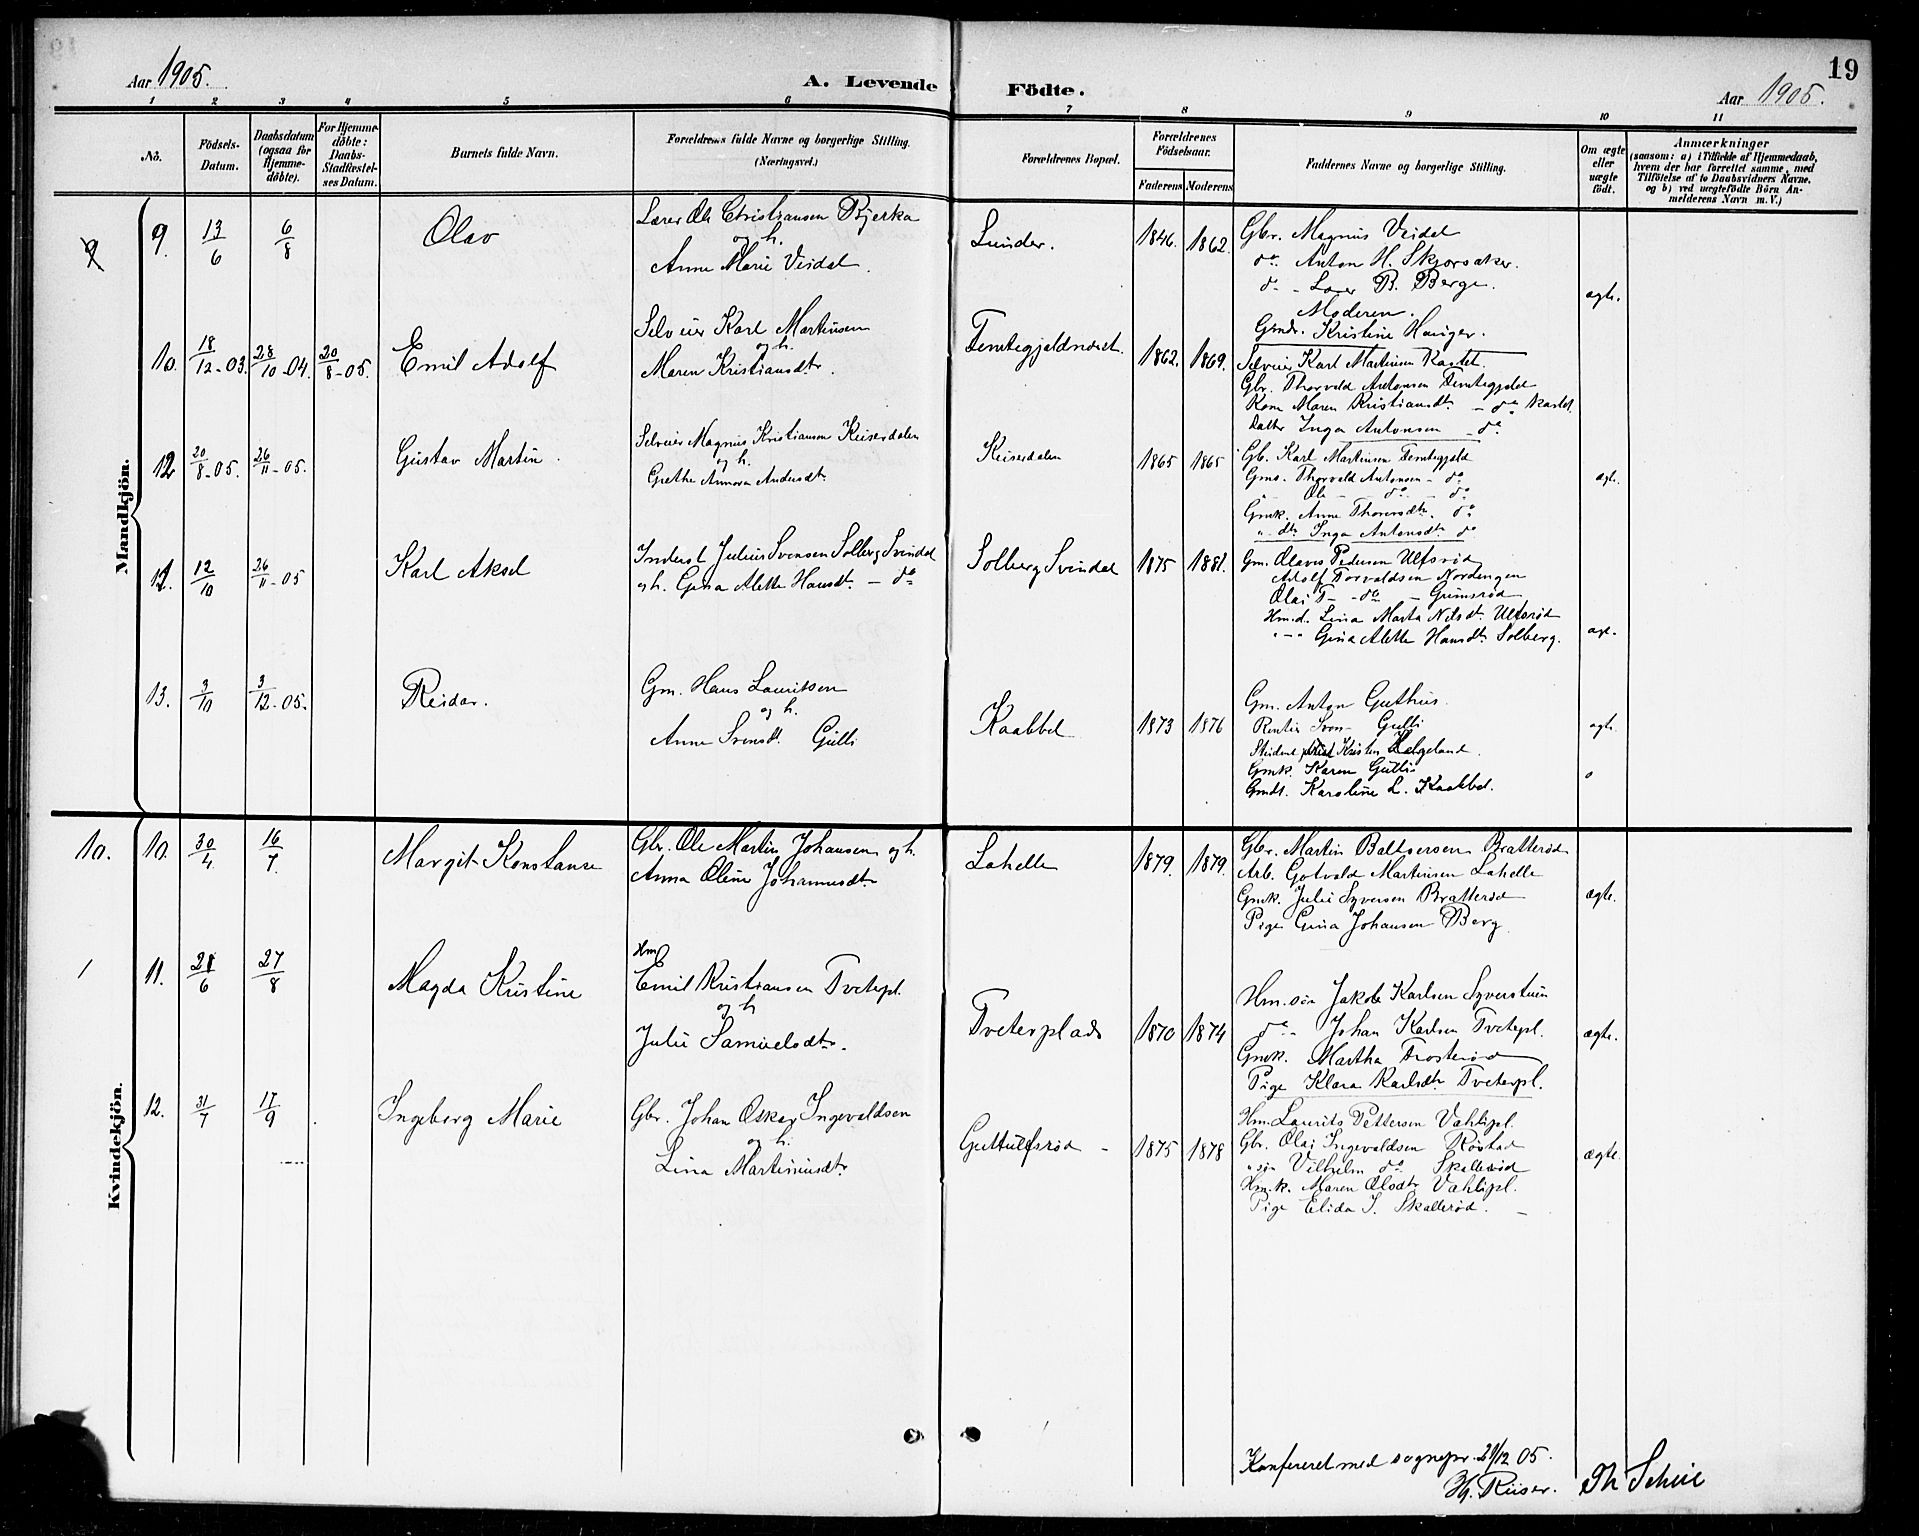 19
Aar 1905.
A. Levende Födte.
Aar 1905.
1 2 3 4 5 6 7 8 9 10 11
No.
Födsels-Datum.
Daabsdatum (ogsaa for Hjemmedöbte).
For Hjemmedöbte: Daabs-Stadfæstelses Datum.
Barnets fulde Navn.
Forældrenes fulde Navne og borgerlige Stilling. (Næringsvei.)
Forældrenes Bopæl.
Forældrenes Födselsaar.
Faderens Moderens
Faddernes Navne og borgerlige Stilling.
Om ægte eller uægte födt.
Anmærkninger (saasom: a) i Tilfælde af Hjemmedaab, hvem der har forrettet samme, med Tilföielse af to Daabsvidners Navne, og b) ved uægtefödte Börn Anmelderens Navn m. V.)
Mandkjön.
9 9. 13/6 6/8
Olav
Lærer Ole Christiansen Bjerka
og h.
Anne Marie Veidal.
Lunder.
1846. 1862.
Gbr. Magnus Veidal
do Anton H. Skjorsaker.
do - Lærer B. Berge.
Moderen.
Gmdr. Kristine Hauger.
ægte.
10. 18/12-03. 28/10-04. 20/8-05.
Emil Adolf
Selveier Karl Martinsen
og h.
Maren Kristiansdtr.
Femtegjeldnordst.
1862. 1869.
Selveier Karl Martinsen Kastet.
Gbr. Thorvald Antonsen Femtegjeld
Kone Maren Kristiansdtr. - do Kastet.
Datter Inga Antonsen - do
12 20/8-05. 26/11-05.
Gustav Martin.
Selveier Magnus Kristiansen Keiserdalen
og h.
Grethe Annora Andersdtr.
Keiserdalen
1865 1865
Gb. Karl Martinsen Femtegjeld
Gms. Thorvald Antonsen - do
" Ole - do - do
Gmk. Anne Thorersdtr. do
" dtr Inga Antonsdtr do
ægte.
12. 12/10 26/11-05
Karl Aksel
Inderst Julius Svensen Solberg Svindal
og h. Gina Alette Hansdtr. - do
Solberg Svindal
1875 1881.
Gm. Olaves Pedersen Ulfsrød
Adolf Torvaldsen Nordengen
Olai T- - do - Grimsrød
Hm.d. Lina Marta Nilsdtr. Ulfsrød
" - " Gina Alette Hansdtr. Solberg.
ægt.
13. 3/10 3/12-05.
Reidar.
Gm. Hans Lauritsen
og h.
Anne Svensdtr. Gulli
Kaabbel
1873 1876
Gm. Anton Guthus.
Rentier Sven Gulli
Student Kristen Helgeland.
Gmk. Karen Gulli
Gmdt. Karoline L. Kaabbel.
ægte.
Kvindekjön.
10. 10. 30/4 16/7
Margit Konstanse
Gbr. Ole Martin Johansen og h.
Anna Oline Johannesdtr
Lahelle
1879. 1879.
Gbr. Martin Baltsersen Bratterød
Arb. Gotvald Martinsen Lahelle
Gmk. Julie Syversen Bratterød
Pige Gina Johansen Berg
ægte.
1 11. 21/6 27/8
Magda Kristine
Hm
Emil Kristiansen Tveterpl.
og h
Julie Samuelsdtr.
Tveterplads
1870 1874
Hm.søn Jakob Karlsen Syverstuen
do - Johan Karlsen Tveterpl.
Gmk. Martha Trosterød
Pige Klara Karlsdtr. Tveterpl.
ægte.
12. 31/7 17/9
Ingeborg Marie
Gbr. Johan Oskar Ingevaldsen
og h.
Lina Martiniusdtr
Guttulfsrød
1875 1878
Hm. Laurits Pettersen Vahlipl.
Gbr. Olai Ingevaldsen Røstad
" søn Vilhelm do Skallerød
Hm.k. Maren Olsdtr Vahlipl.
Pige Elida I. Skallerød.
ægte.
Konfereret med sognepr. 21/12 05.
Hj. Riiser. Th Schie